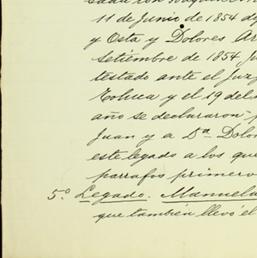 11 de Junio de 1854 d
y Osta y Dolores Ar
setiembre de 1854 Ju
testado ante el Juz
Toluca y el 19 del
año se declararon
Juan y a Dª Dolo
este legado a los que
parrafos primero
5º Legado. Manuela
que también llevó el